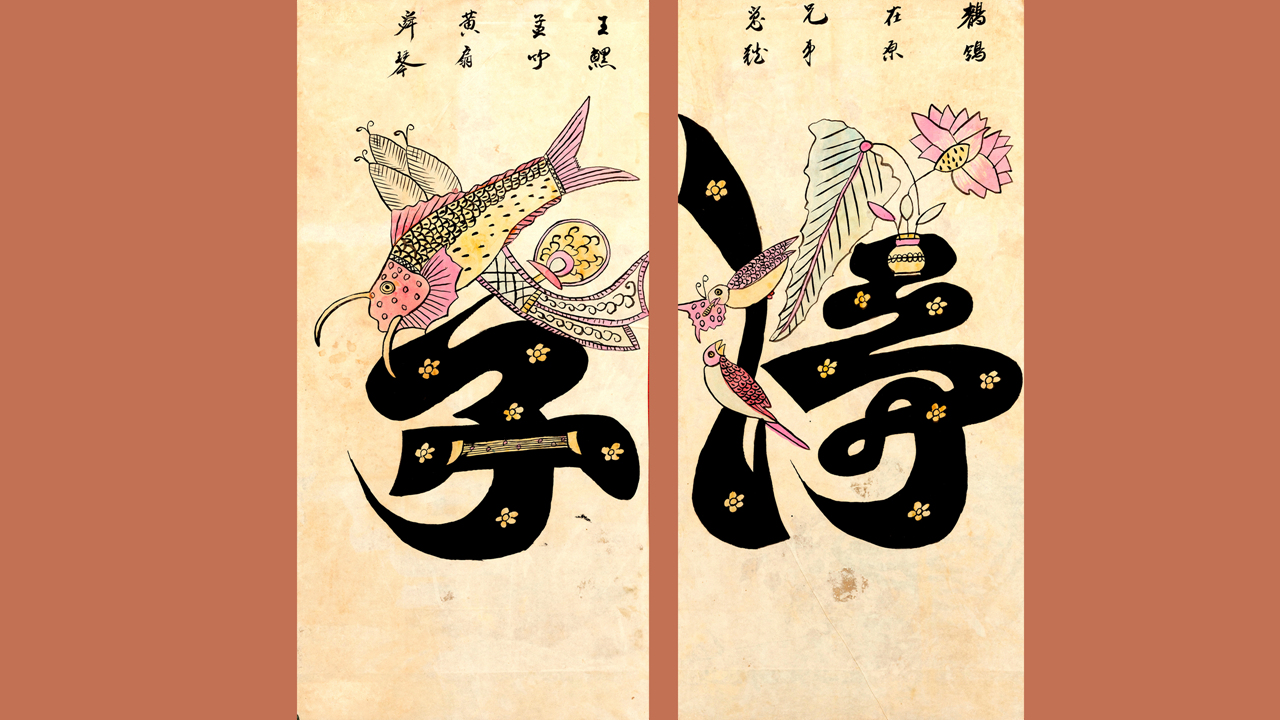 王鯉
孟竹
黄扇
舜琴
孝
鶺鴒
在原
兄弟
急難
悌